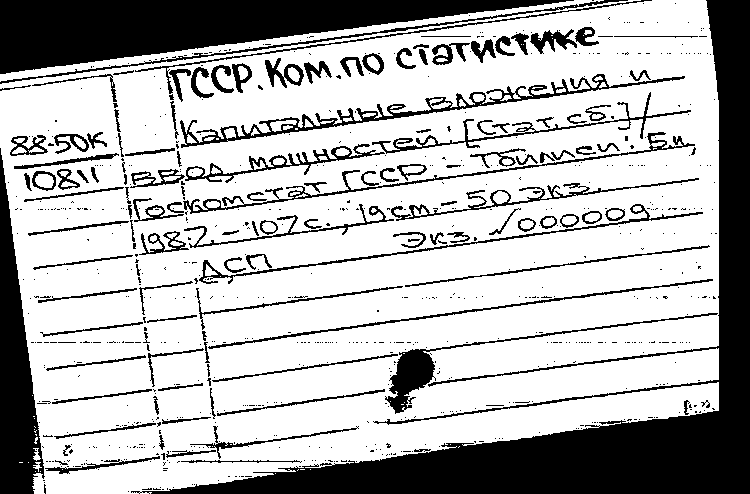 ГССР. Ком. по статистике
Капитальные вложения и
88-50К
10811
ввод мощностей: [Стат. сб.] /
Госкомстат ГССР. - Тбилиси: Б.и,
1987. - 107 с., 19 см. - 50 экз.
Экз. √000009
ДСП